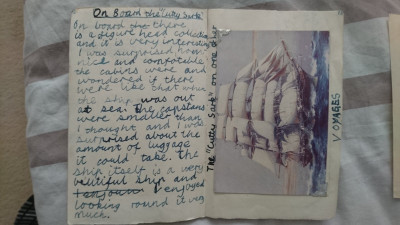 On Board the "Cutty Sark"
On board the there
is a figure head collection
and it is very interesting
I was surprised how
nice and comfortable
the cabins were and
wondered if there
were like that when
the ship was out
at sea. The captains
were smaller than
I thought and I was
surprised about the
amount of luggage
it could take. the
ship itself is a very
beutiful ship and
I enjoyed
looking round it very
much.
The "Cutty Sark" on one of her
VOYAGES